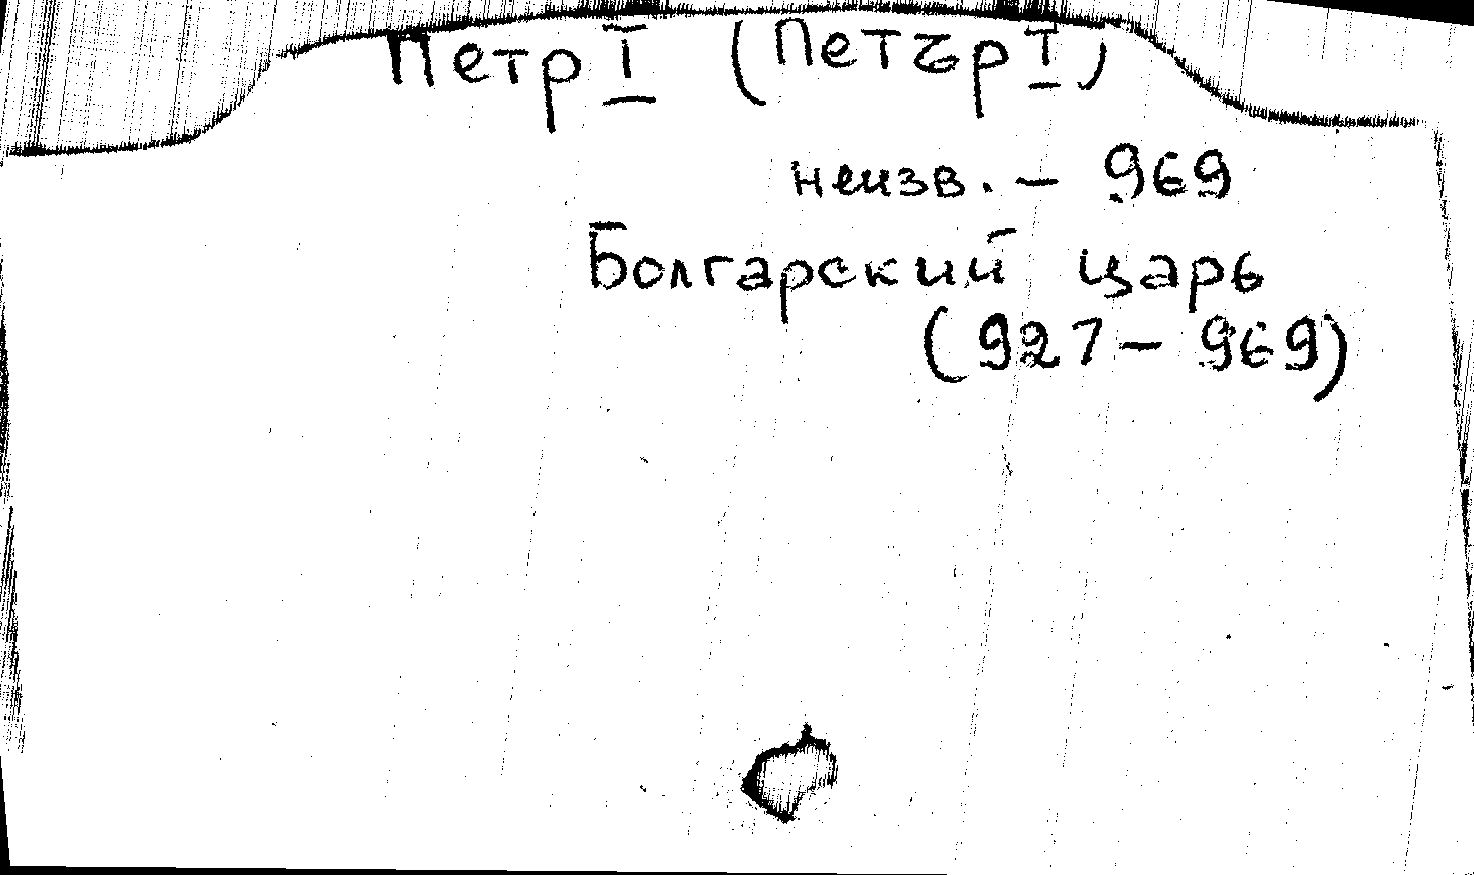 Петр I (Петър I)
неизв. – 969
Болгарский царь
(927 – 969)